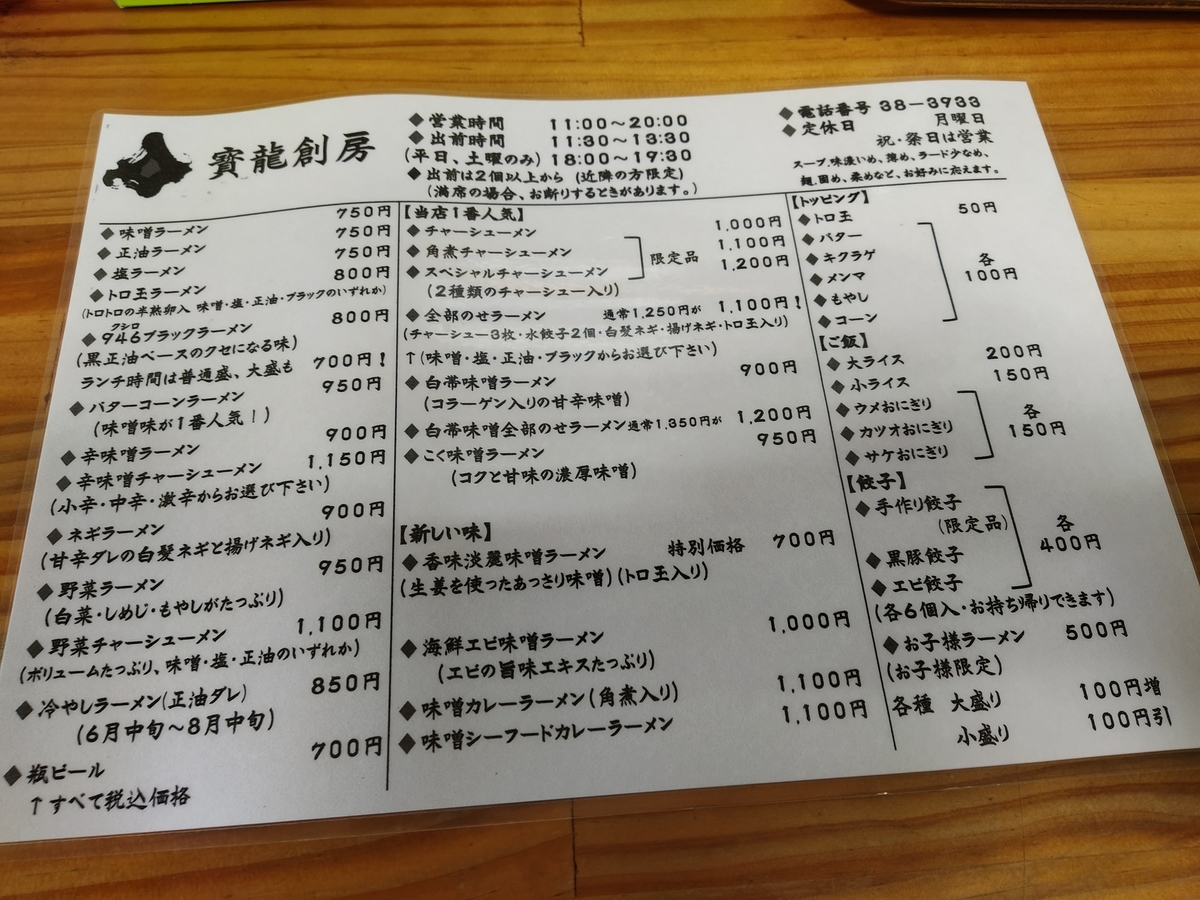 寳龍創房
◆営業時間 11:00～20:00
◆出前時間 11:30～13:30
(平日、土曜のみ) 18:00～19:30
◆出前は2個以上から (近隣の方限定)
(満席の場合、お断りするときがあります。)
◆電話番号 38－3933
◆定休日 月曜日
祝・祭日は営業
スープ.味濃いめ、薄め、ラード少なめ、
麺.固め、柔めなど、お好みに応えます。
◆味噌ラーメン 750円
◆正油ラーメン 750円
◆塩ラーメン 750円
◆トロ玉ラーメン 800円
(トロトロの半熟卵入 味噌・塩・正油・ブラックのいずれか)
クシロ
◆946ブラックラーメン 800円
(黒正油ベースのクセになる味)
ランチ時間は普通盛、大盛も 700円!
◆バターコーンラーメン 950円
(味噌味が1番人気！)
◆辛味噌ラーメン 900円
◆辛味噌チャーシューメン 1,150円
(小辛・中辛・激辛からお選び下さい)
◆ネギラーメン 900円
(甘辛ダレの白髪ネギと揚げネギ入り)
◆野菜ラーメン 950円
(白菜・しめじ・もやしがたっぷり)
◆野菜チャーシューメン 1,100円
(ボリュームたっぷり、味噌・塩・正油のいずれか)
◆冷やしラーメン(正油ダレ) 850円
(6月中旬～8月中旬)
◆瓶ビール 700円
↑すべて税込価格
【当店1番人気】
◆チャーシューメン 1,000円
◆角煮チャーシューメン 1,100円
限定品
◆スペシャルチャーシューメン 1,200円
(2種類のチャーシュー入り)
◆全部のせラーメン 通常1,250円が 1,100円!
(チャーシュー3枚・水餃子2個・白髪ネギ・揚げネギ・トロ玉入り)
↑(味噌・塩・正油・ブラックからお選び下さい)
◆白帯味噌ラーメン 900円
(コラーゲン入りの甘辛味噌)
◆白帯味噌全部のせラーメン通常1,350円が 1,200円
◆こく味噌ラーメン 950円
(コクと甘味の濃厚味噌)
【新しい味】
◆香味淡麗味噌ラーメン 特別価格 700円
(生姜を使ったあっさり味噌)(トロ玉入り)
◆海鮮エビ味噌ラーメン 1,000円
(エビの旨味エキスたっぷり)
◆味噌カレーラーメン(角煮入り) 1,100円
◆味噌シーフードカレーラーメン 1,100円
【トッピング】
◆トロ玉 50円
◆バター
◆キクラゲ
各
◆メンマ 100円
◆もやし
◆コーン
【ご飯】
◆大ライス 200円
◆小ライス 150円
◆ウメおにぎり
各
◆カツオおにぎり 150円
◆サケおにぎり
【餃子】
◆手作り餃子
(限定品)
各
400円
◆黒豚餃子
◆エビ餃子
(各6個入・お持ち帰りできます)
◆お子様ラーメン 500円
(お子様限定)
各種 大盛り 100円増
小盛り 100円引